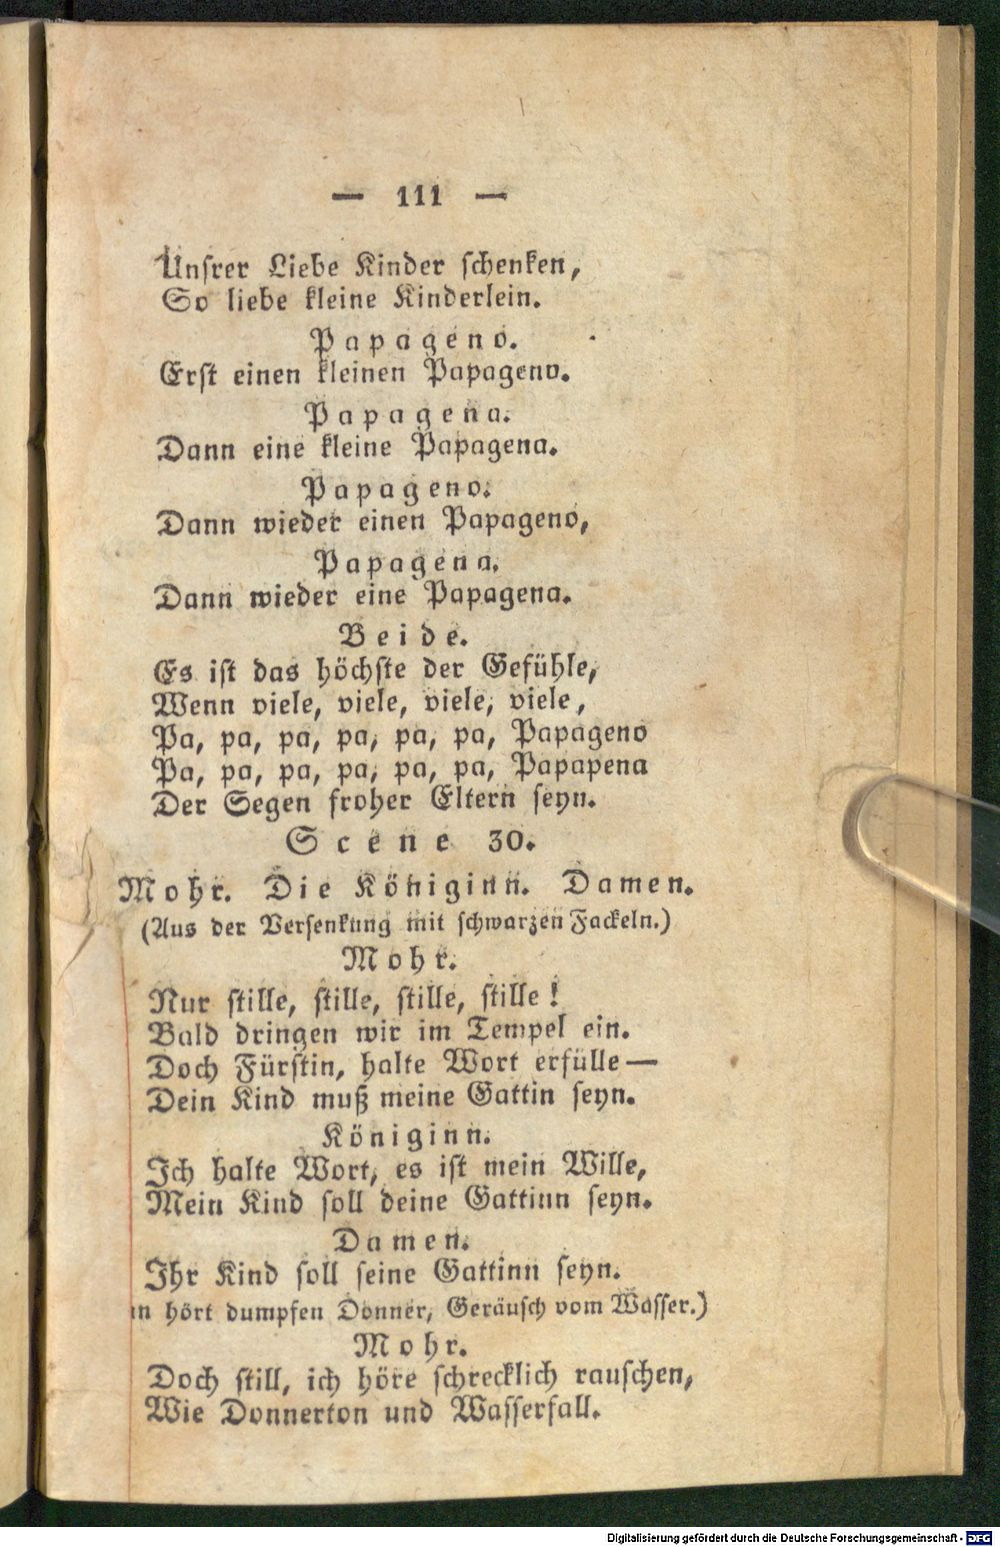 — 111 —
Unsrer Liebe Kinder schenken,
So liebe kleine Kinderlein.
Papageno.
Erst einen kleinen Papageno.
Papagena.
Dann eine kleine Papagena.
Papageno.
Dann wieder einen Papageno,
Papagena.
Dann wieder eine Papagena.
Beide.
Es ist das höchste der Gefühle,
Wenn viele, viele, viele, viele,
Pa, pa, pa, pa, pa, pa, Papageno
Pa, pa, pa, pa, pa, pa, Papapena
Der Segen froher Eltern seyn.
Scene 30.
Mohr. Die Königinn. Damen.
(Aus der Versenkung mit schwarzen Fackeln.)
Mohr.
Nur stille, stille, stille, stille!
Bald dringen wir im Tempel ein.
Doch Fürstin, halte Wort erfülle—
Dein Kind muß meine Gattin seyn.
Königinn.
Ich halte Wort, es ist mein Wille,
Mein Kind soll deine Gattinn seyn.
Damen.
Ihr Kind soll seine Gattinn seyn.
n hört dumpfen Donner, Geräusch vom Wasser.)
Mohr.
Doch still, ich höre schrecklich rauschen,
Wie Donnerton und Wasserfall.
Digitalisierung gefördert durch die Deutsche Forschungsgemeinschaft - DFG